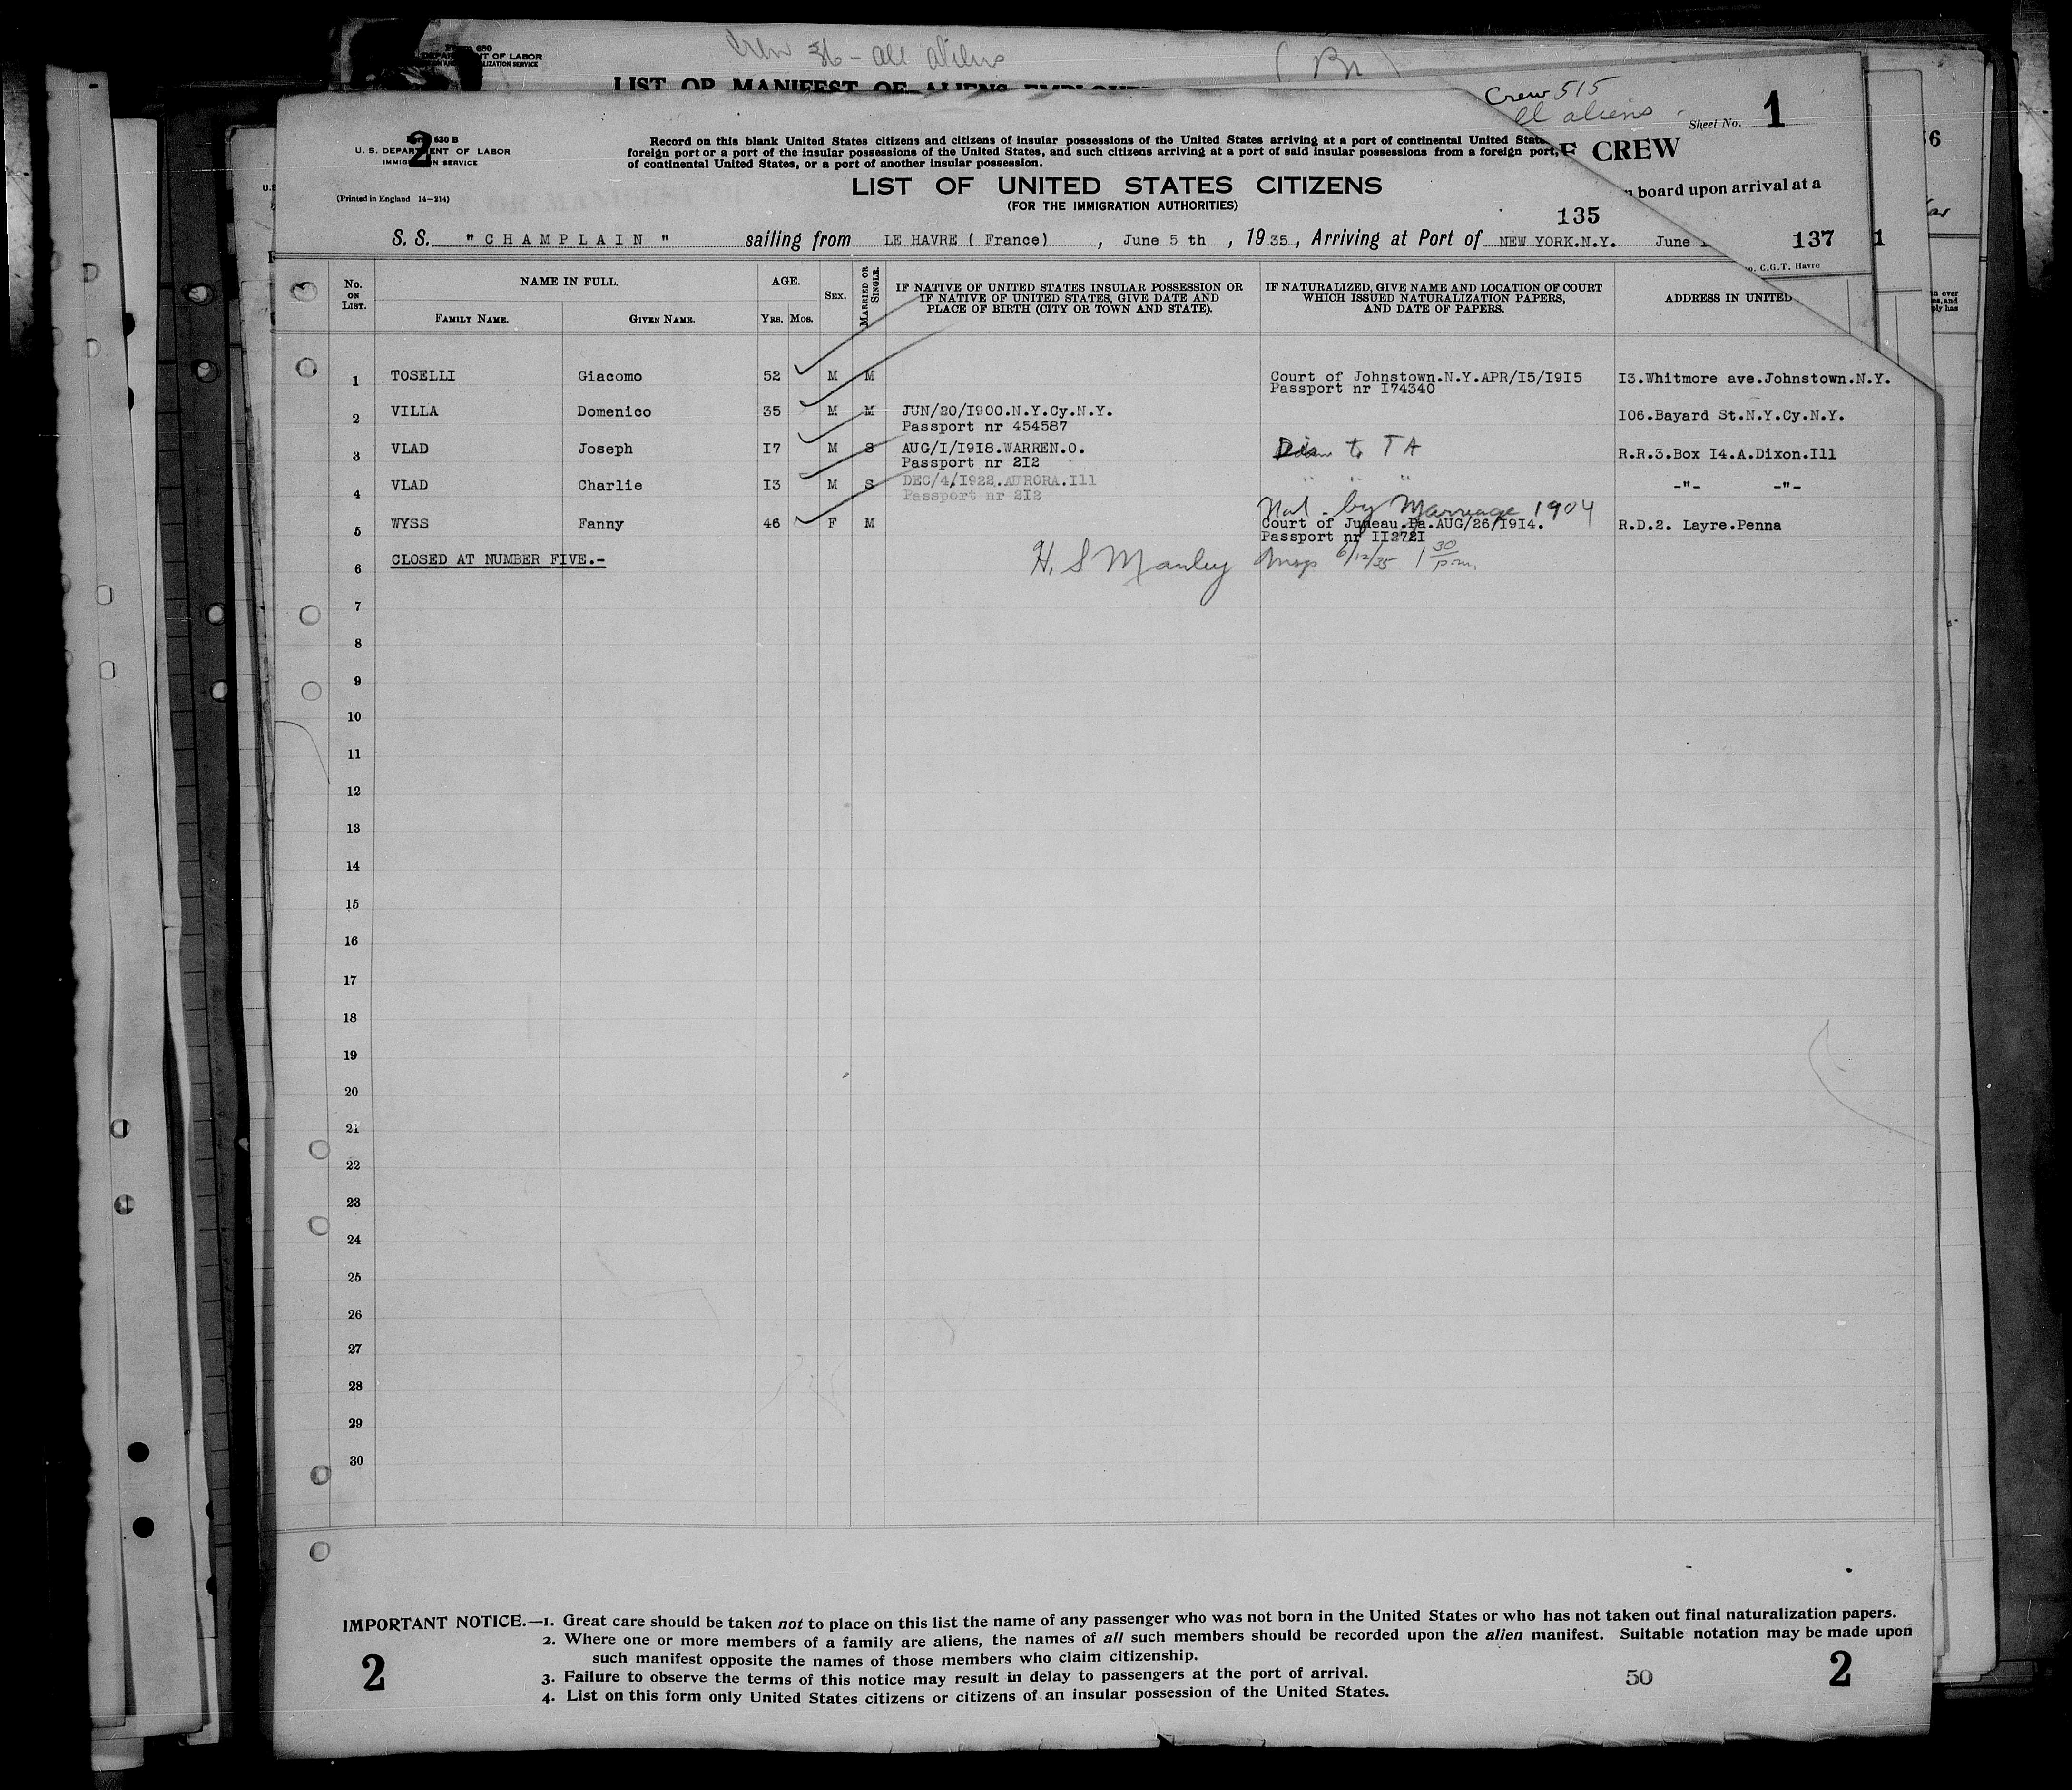 Crew 36 - all aliens
( Br )
Form 680
U. S. DEPARTMENT OF LABOR
IMMIGRATION SERVICE
LIST OR MANIFEST OF ALIENS EMPLOYED
Crew 515
all aliens
Sheet No. 1
F CREW
n board upon arrival at a
137
1
o. C.G.T. Havre
2
Form 630 B
U. S. DEPARTMENT OF LABOR
IMMIGRATION SERVICE
(Printed in England 14—214)
Record on this blank United States citizens and citizens of insular possessions of the United States arriving at a port of continental United Stat
foreign port or a port of the insular possessions of the United States, and such citizens arriving at a port of said insular possessions from a foreign port,
of continental United States, or a port of another insular possession.
LIST OF UNITED STATES CITIZENS
(FOR THE IMMIGRATION AUTHORITIES)
135
S. S. "CHAMPLAIN" sailing from LE HAVRE ( France) , June 5 th , 1935, Arriving at Port of NEW YORK.N.Y. June 1
No. ON LIST. NAME IN FULL. FAMILY NAME. GIVEN NAME. AGE. YRS. MOS. SEX. MARRIED OR SINGLE.
IF NATIVE OF UNITED STATES INSULAR POSSESSION OR
IF NATIVE OF UNITED STATES, GIVE DATE AND
PLACE OF BIRTH (CITY OR TOWN AND STATE).
IF NATURALIZED, GIVE NAME AND LOCATION OF COURT
WHICH ISSUED NATURALIZATION PAPERS,
AND DATE OF PAPERS.
ADDRESS IN UNITED
1 TOSELLI Giacomo 52 M M Court of Johnstown.N.Y.APR/I5/I9I5 I3.Whitmore ave.Johnstown.N.Y.
Passport nr I74340
2 VILLA Domenico 35 M M JUN/20/I900.N.Y.Cy.N.Y. I06.Bayard St.N.Y.Cy.N.Y.
Passport nr 454587
3 VLAD Joseph I7 M S AUG/I/I9I8.WARREN.O. to TA R.R.3.Box I4.A.Dixon.Ill
Passport nr 2I2
4 VLAD Charlie I3 M S DEC/4/I922.AURORA.Ill " " " -"- -"-
Passport nr 2I2
Nat. by Marriage 1904
5 WYSS Fanny 46 F M Court of Juneau.Pa.AUG/26/I9I4. R.D.2. Layre.Penna
Passport nr II272I
6 CLOSED AT NUMBER FIVE.- H. S Manley Insp 6/12/35 1 30 p.m.
7
8
9
10
11
12
13
14
15
16
17
18
19
20
21
22
23
24
25
26
27
28
29
30
IMPORTANT NOTICE.—1. Great care should be taken not to place on this list the name of any passenger who was not born in the United States or who has not taken out final naturalization papers.
2. Where one or more members of a family are aliens, the names of all such members should be recorded upon the alien manifest. Suitable notation may be made upon
such manifest opposite the names of those members who claim citizenship.
3. Failure to observe the terms of this notice may result in delay to passengers at the port of arrival.
4. List on this form only United States citizens or citizens of an insular possession of the United States.
2
50
2